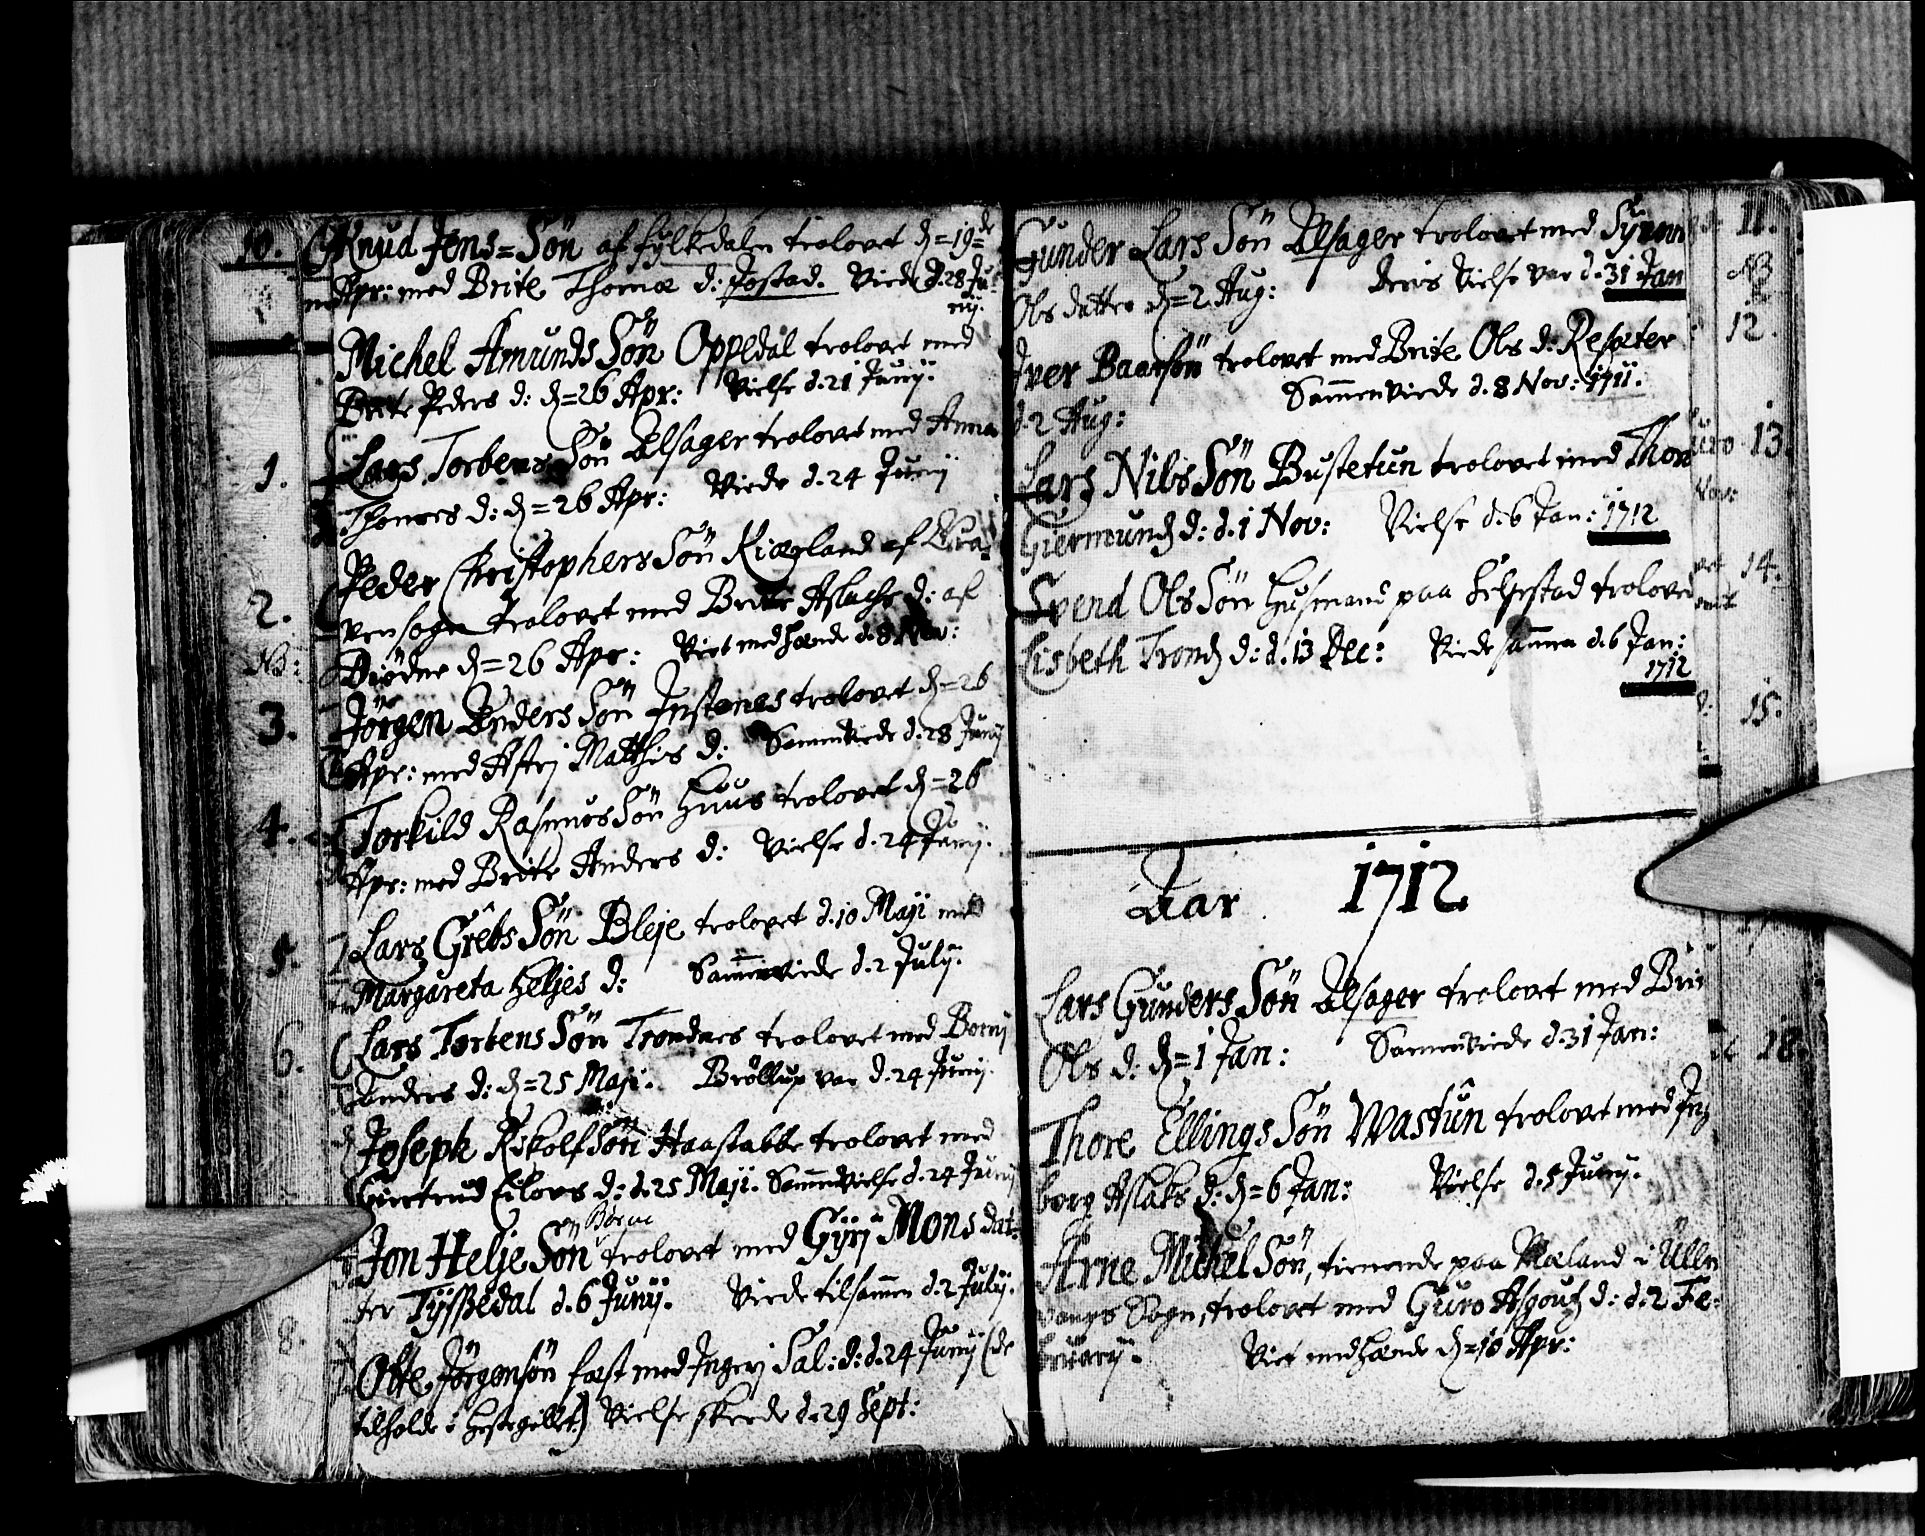 10.
Knud Jens=Søn af fylkedalen trolovet d=19=de
Apr: med Brite Thomæ d: Jostad. Viede d.28 Ju=
nij.
Michel Amunds Søn Oppedal trolovet med
Brite Peders d: d=26 Apr: Vielse d.21 Junij.
1.
Lars Torbens Søn Alsager trolovet med Anna
Thomæs d: d=26 Apr: Viede d.24 Junij
2.
Peder Christophers Søn Kiægland af
vensogn trolovet med Brite Aslachs d: af
NB:
Diödne d=26 Apr: Viet med hænde d.8 Nov:
3.
Jørgen Anders Søn Instenes trolovet d=26
Apr: med Astrj Matthis d: Sammenviede d.28 Junij
4.
Torkild Rasmus Søn Huus trolovet d=26
Apr: med Brite Anders d: Vielse d.24 Junij.
5.
Lars Grebs Søn Bleje trolovet d.10 Maji med
Margareta Heljes d: Sammenviede d.2 Julij.
6.
Lars Torbens Søn Trondnes trolovet med
Anders d: d=25 Maji. Bröllup var d.24 Junij.
Joseph Eskolf Søn Haastabbe trolovet med
Giertrud Eilovs d: d.25 Maji. Sammenvielse d.24 Junij
Børve
Jon Helje Søn trolovet med Gyrj Mons dat=
ter Tyssedal d.6 Junij. Viede tilsammen d.2 Julij.
8.
Otte Jørgensön fæst med Ingerj Sal: d: d.24 Junij (de
tilholde i Hestegillet) Vielse skeede d.29 Sept:
Gunder Lars Søn Alsager trolovet med
11.
Ols datter d=2 Aug: Deris Vielse var d.31 Jan
NB
12.
Iver Baarsøn trolovet med Brite Ols d: Resæter
d.2 Aug: Sammenviede d.8 Nov: 1711.
13.
Lars Nils Søn Bustetun trolovet med
Giermund d: d.1 Nov: Vielse d.6 Jan: 1712
Nov:
14.
Svend Ols Søn Husmand paa Helgestad trolovet
Lisbeth Trond d: d.13 Dec: Viede sammen d.6 Jan:
1712
15.
Aar 1712
Lars Gunders Søn Alsager trolovet med
Ols d: d=1 Jan: Sammenviede d.31 Jan:
18.
Thore Ellings Søn Wastun trolovet med Ing
borg Aslaks d: d=6 Jan: Vielse d.5 Junij.
Arne Michel Søn, tienende paa Mæland i Ullen
vangs Sogn, trolovet med Guro Asgouts d: d.2 Fe=
bruarij. Viet med hænde d=10 Apr: